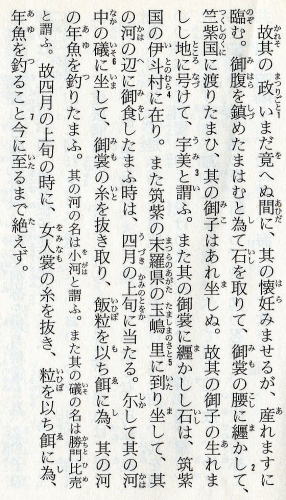 故其の政いまだ竟へぬ間に、其の懐妊みませるが、産れますに
臨む。御腹を鎮めたまはむと為て石を取りて、御裳の腰に纒かして、
竺紫国に渡りたまひ、其の御子はあれ坐しぬ。故其の御子の生れま
しし地に号けて、宇美と謂ふ。また其の御裳に纒かしし石は、筑紫
国の伊斗村に在り。また筑紫の末羅県の玉嶋里に到り坐して、其
の河の辺に御食したまふ時は、四月の上旬に当たる。尓して其の河
中の礒に坐して、御裳の糸を抜き取り、飯粒を以ち餌に為、其の河
の年魚を釣りたまふ。其の河の名は小河と謂ふ。また其の礒の名は勝門比売
と謂ふ。故四月の上旬の時に、女人裳の糸を抜き、粒を以ち餌に為、
年魚を釣ること今に至るまで絶えず。